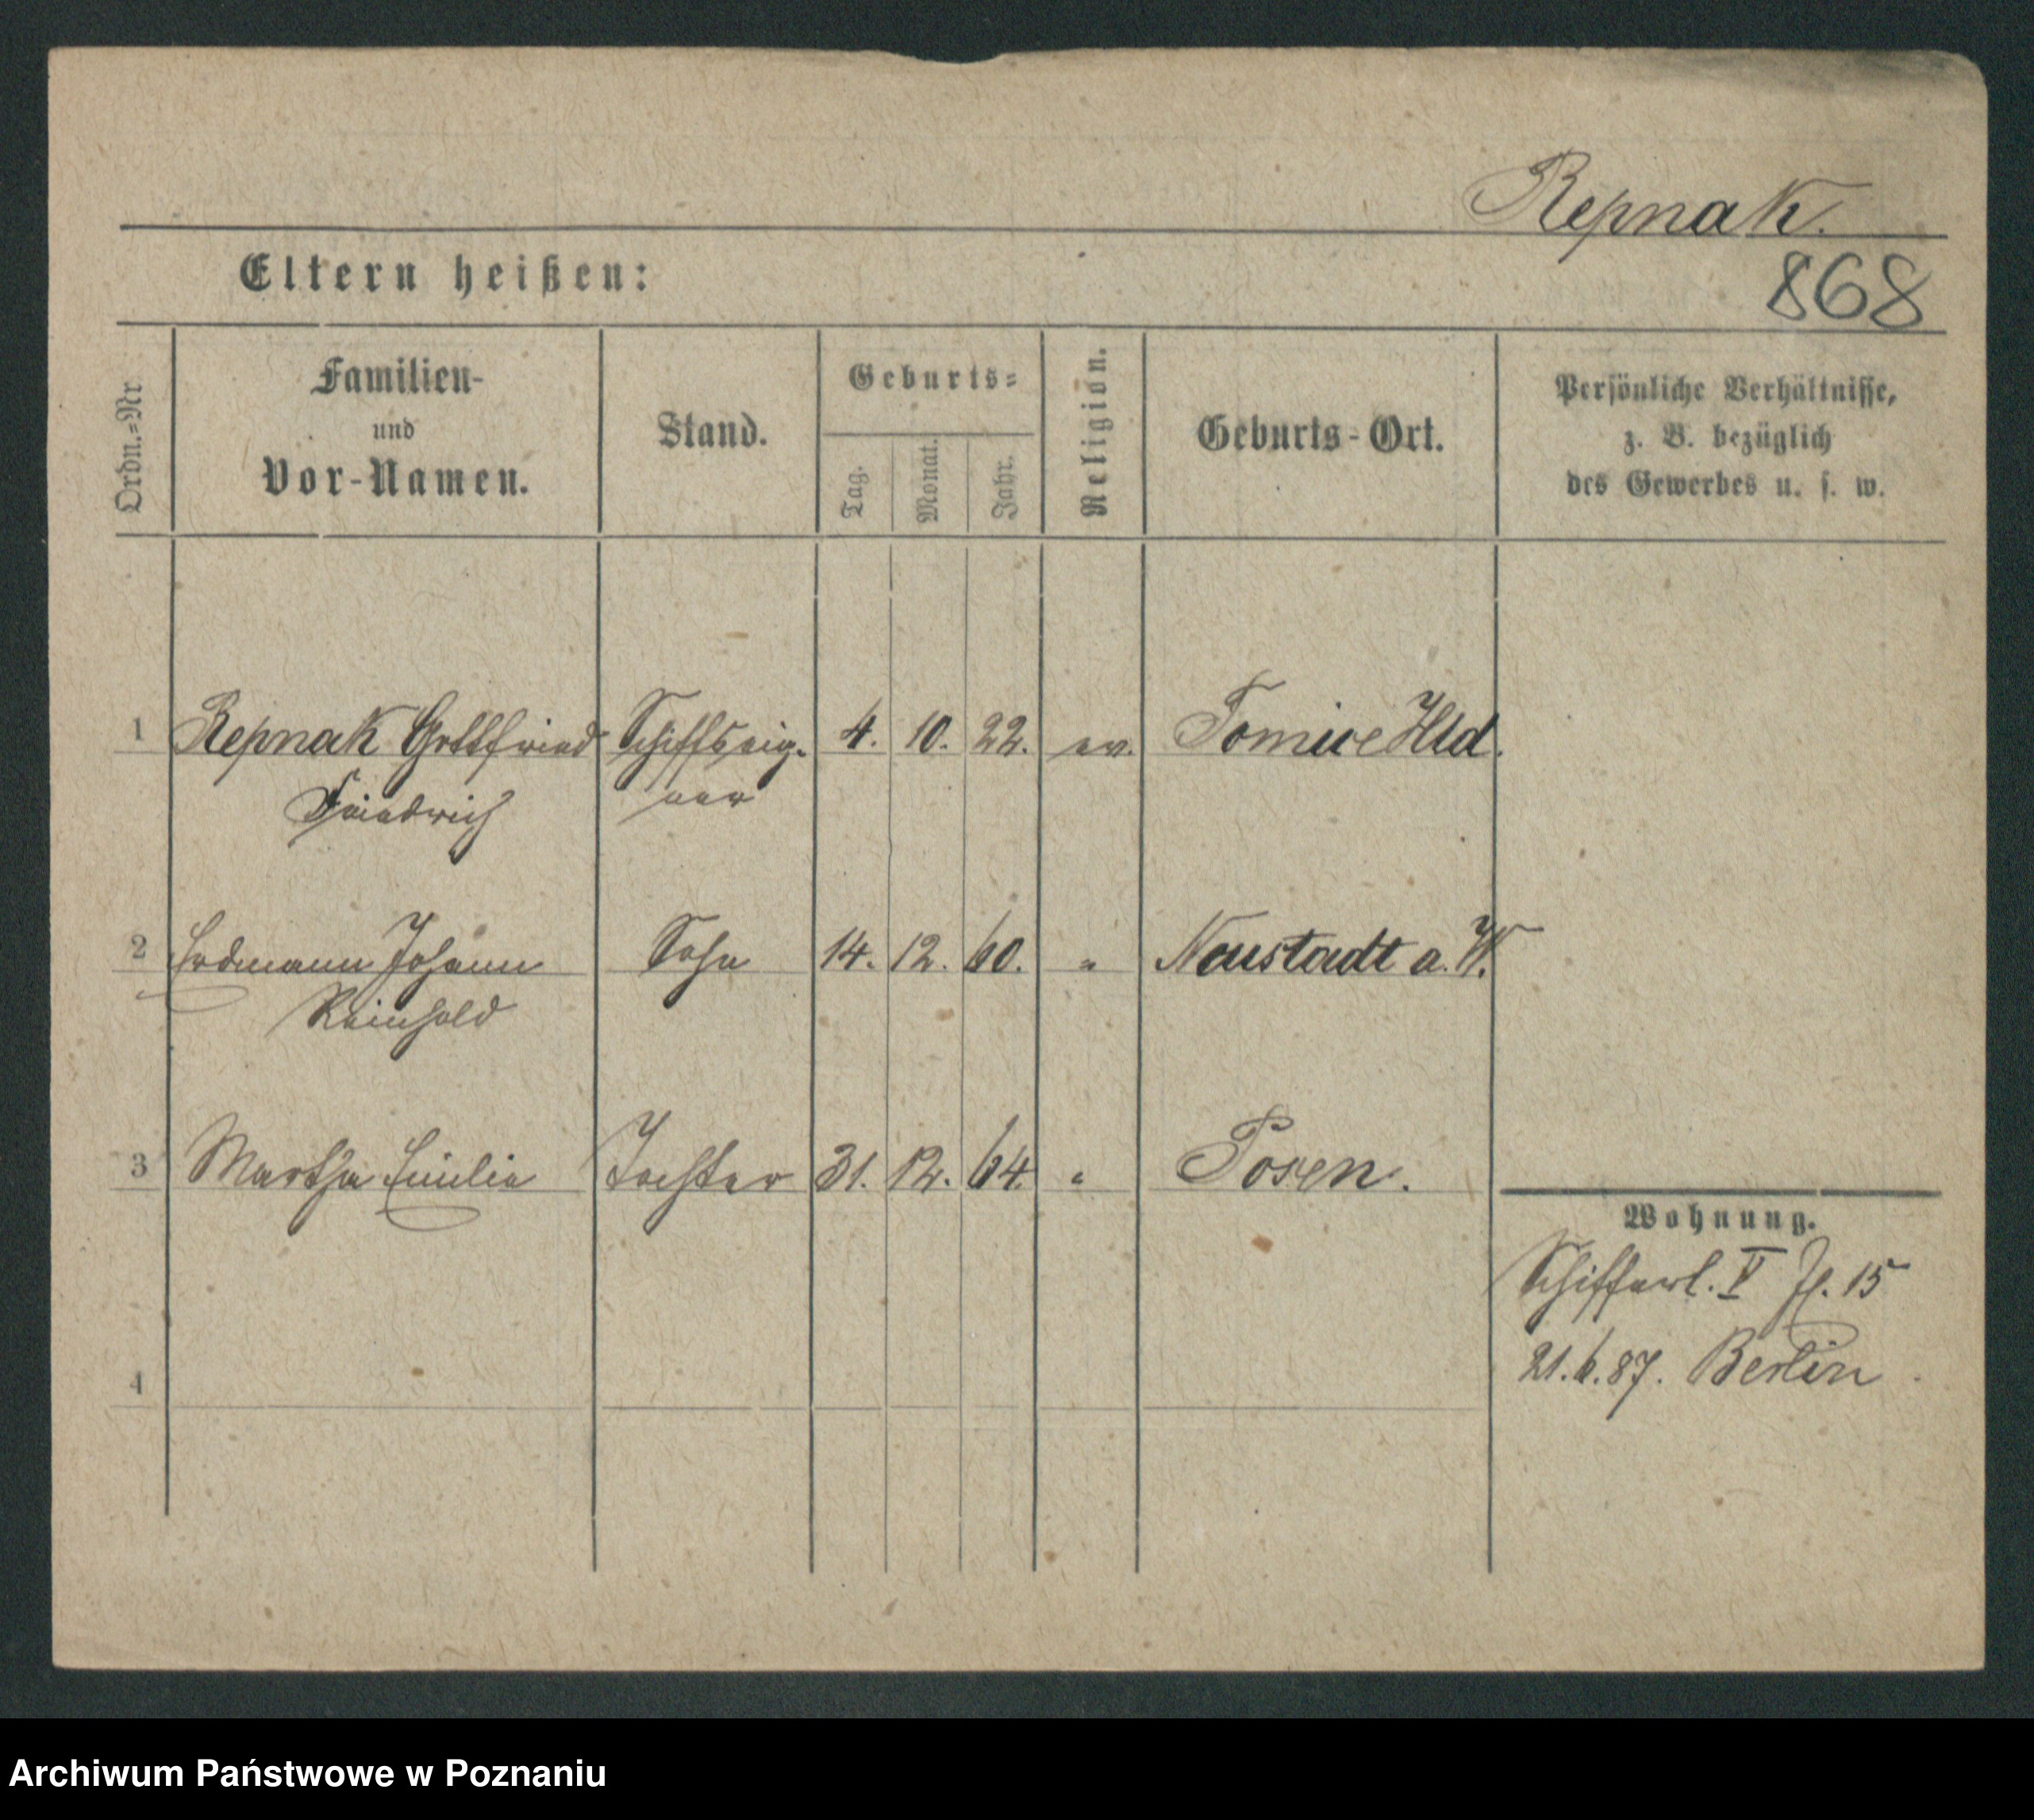 Repnak.
868
Eltern heißen:
Ordn.=Nr.
Familien-
und
Vor-Namen.
Stand.
Geburts=
Tag.
Monat.
Jahr.
Religion.
Geburts-Ort.
Persönliche Verhältnisse,
z. B. bezüglich
des Gewerbes u. s. w.
1 Repnak Gottfried Schiffseig- 4. 10. 22. ev. Tomice Hld.
Friedrich ner
2 Erdmann Johann Sohn 14. 12. 60. " Neustadt a. W.
Reinhold
3 Martha Emilie Tochter 31. 12. 64. " Posen.
Wohnung.
Schifferl. V 15
21.6.87. Berlin
4
Archiwum Państwowe w Poznaniu